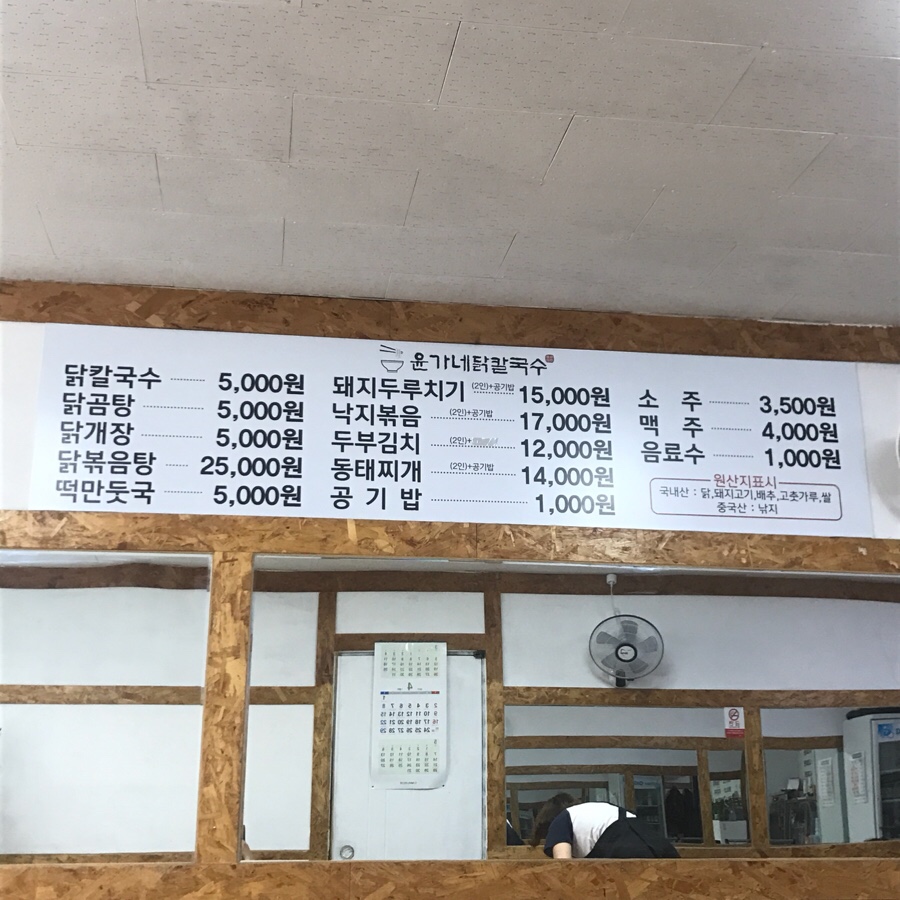 윤가네닭칼국수
닭칼국수 5,000원
닭곰탕 5,000원
닭개장 5,000원
닭볶음탕 25,000원
떡만둣국 5,000원
돼지두루치기 (2인)+공기밥 15,000원
낙지볶음 (2인)+공기밥 17,000원
두부김치 (2인)+ 12,000원
동태찌개 (2인)+공기밥 14,000원
공기밥 1,000원
소주 3,500원
맥주 4,000원
음료수 1,000원
원산지표시
국내산 : 닭,돼지고기,배추,고춧가루,쌀
중국산 : 낚지
4